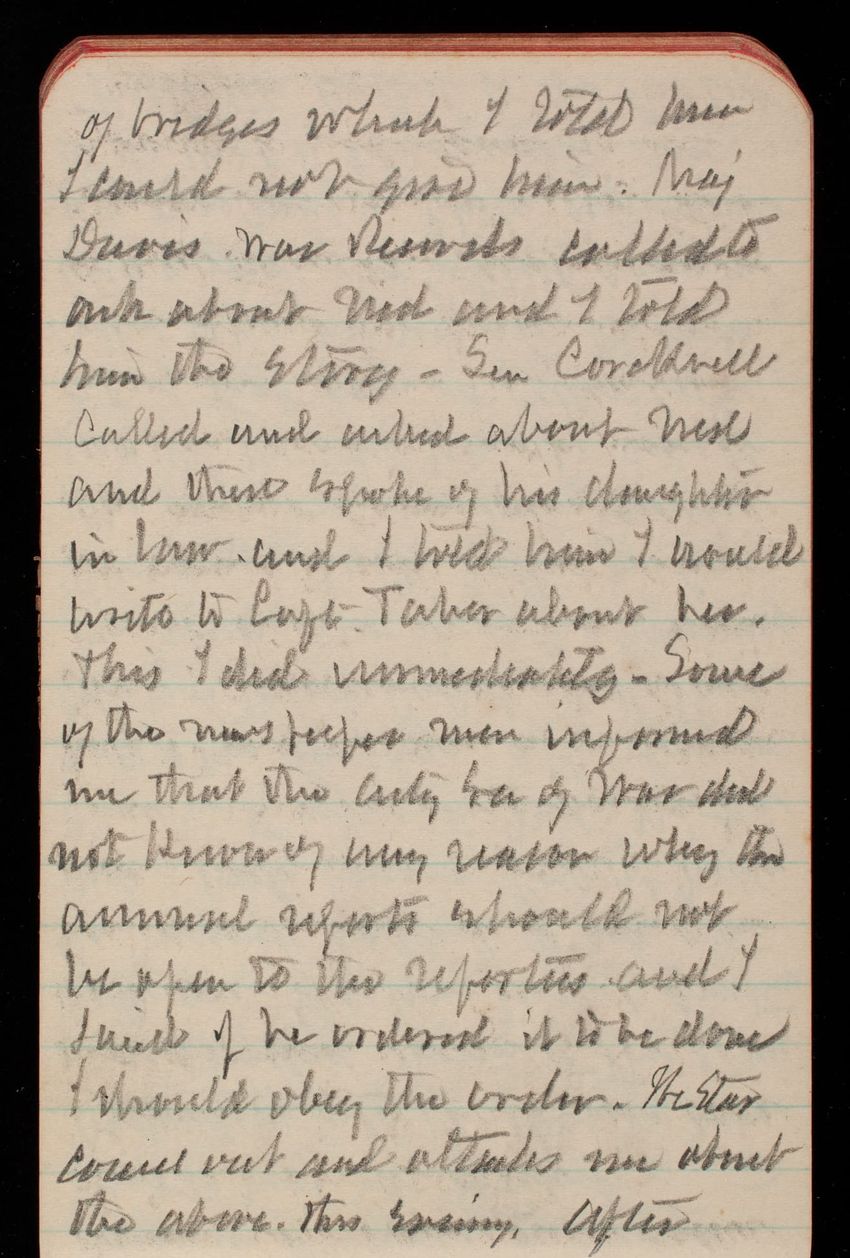 of bridges which I told him
I could not give him. Maj
Davis War Records called to
ask about Ned and I told
him the story - Sen Cockrell
called and asked about Ned
and then spoke of his daughter
in law and I told him I would
write to Capt. Taber about her.
This I did immediately - Some
of the newspaper men informed
me that the actg Sec of War did
not know of any reason why the
annual reports should not
be open to the reporters and I
said if he ordered it to be done
I should obey the order. The Star
comes out and attacks me about
the above. this evening. After